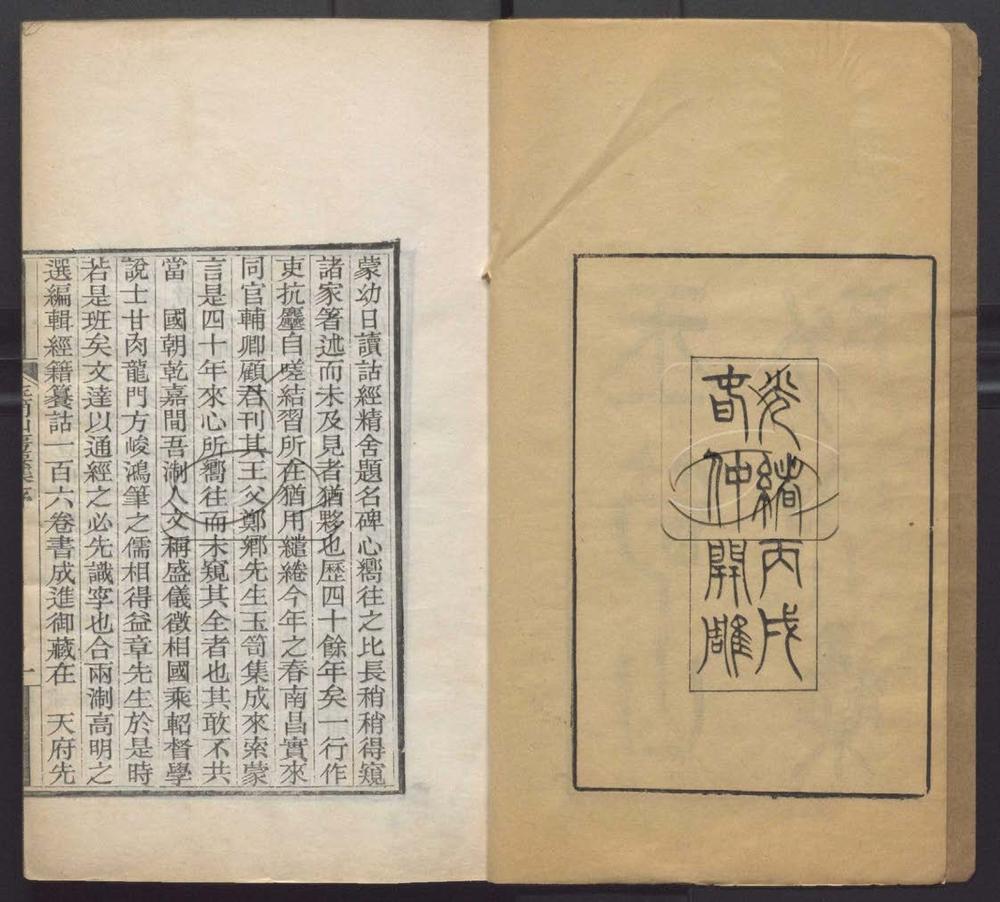 光緒丙戌
春仲開雕
蒙幼日讀詁經精舍題名碑心嚮往之比長稍稍得窺
諸家箸述而未及見者猶夥也歷四十餘年矣一行作
吏抗塵自嗟結習所在猶用繾綣今年之春南昌實來
同官輔卿顧君刊其王父鄭鄉先生玉笥集成來索蒙
言是四十年來心所嚮往而未窺其全者也其敢不共
當　國朝乾嘉間吾淛人文稱盛儀徵相國乘軺督學
說士甘肉龍門方峻鴻筆之儒相得益章先生於是時
若是班矣文達以通經之必先識字也合兩淛高明之
選編輯經籍籑詁一百六卷書成進御藏在　天府先